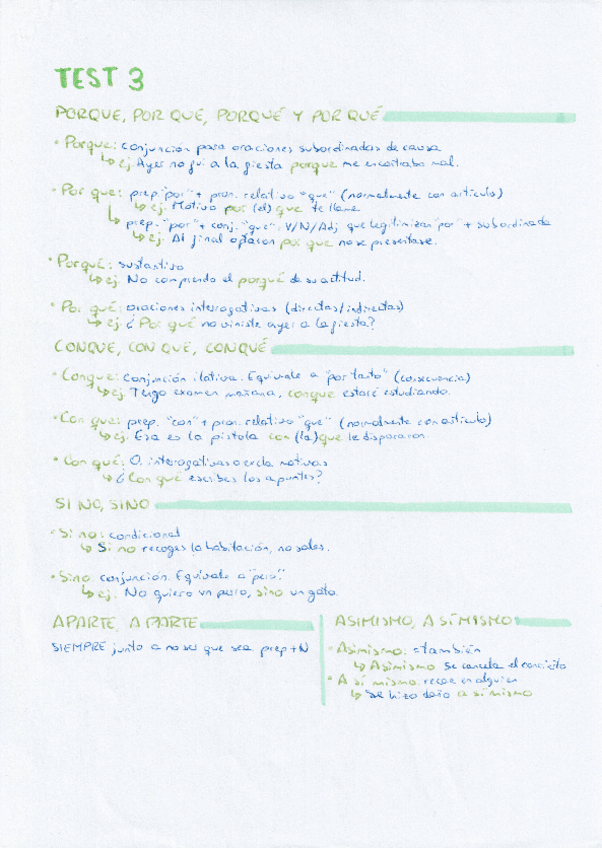 TEST 3
PORQUE, POR QUE, PORQUÉ Y POR QUÉ
• Porque: conjunción para oraciones subordinadas de causa
↳ ej. Ayer no fui a la fiesta porque me encontraba mal.
• Por que: prep "por" + pron. relativo "que" (normalmente con artículo)
↳ ej. Motivo por (el) que te llamé
↳ prep. "por" + conj. "que". V/N/Adj que legitimizan "por" + subordinada
↳ ej. Al final optaron por que no se presentase.
• Porqué: sustantivo
↳ ej. No comprendo el porqué de su actitud.
• Por qué: oraciones interogativas (directas/indirectas)
↳ ej. ¿Por qué no viniste ayer a la fiesta?
CONQUE, CON QUE, CONQUÉ
• Conque: conjunción ilativa. Equivale a "por tanto" (consecuencia)
↳ ej. Tengo examen mañana, conque estaré estudiando.
• Con que: prep. "con" + pron. relativo "que" (normalmente con artículo)
↳ ej. Esa es la pistola con (la) que le dispararon.
• Con qué: O. interogativas o exclamativas
↳ ¿Con qué escribes los apuntes?
SI NO, SINO
• Si no: condicional
↳ Si no recoges la habitación, no sales.
• Sino: conjunción. Equivale a "pero".
↳ ej. No quiero un perro, sino un gato.
APARTE, A PARTE
SIEMPRE junto a no ser que sea prep + N
ASIMISMO, A SÍ MISMO
• Asimismo: = también
↳ Asimismo se cancela el concierto
• A sí mismo: recae en alguien
↳ Se hizo daño a sí mismo